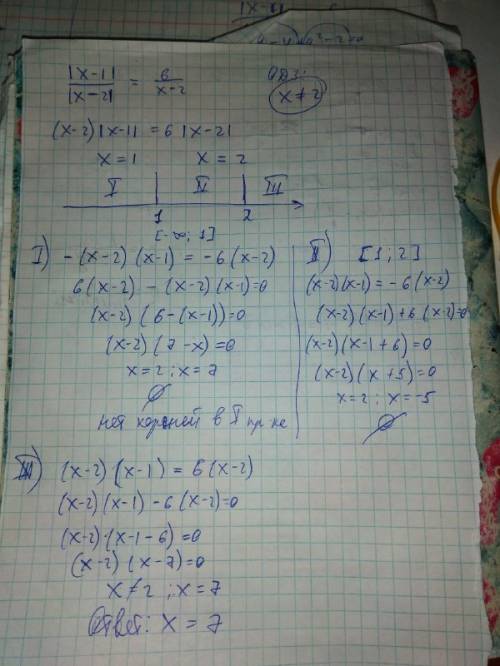 |x-1| / |x-2| = 6 / x-2 ОДЗ:
x≠2
(x-2)|x-1| = 6|x-2|
x=1 x=2
I II III
1 2
[-∞; 1]
I) -(x-2)(x-1) = -6(x-2)
6(x-2) - (x-2)(x-1)=0
(x-2)(6-(x-1))=0
(x-2)(7-x)=0
x=2; x=7
∅
нет корней в I пр-ке
II) [1; 2]
(x-2)(x-1) = -6(x-2)
(x-2)(x-1)+6(x-2)=0
(x-2)(x-1+6)=0
(x-2)(x+5)=0
x=2; x=-5
∅
III) (x-2)(x-1) = 6(x-2)
(x-2)(x-1)-6(x-2)=0
(x-2)·(x-1-6)=0
(x-2)(x-7)=0
x≠2; x=7
Ответ: x=7